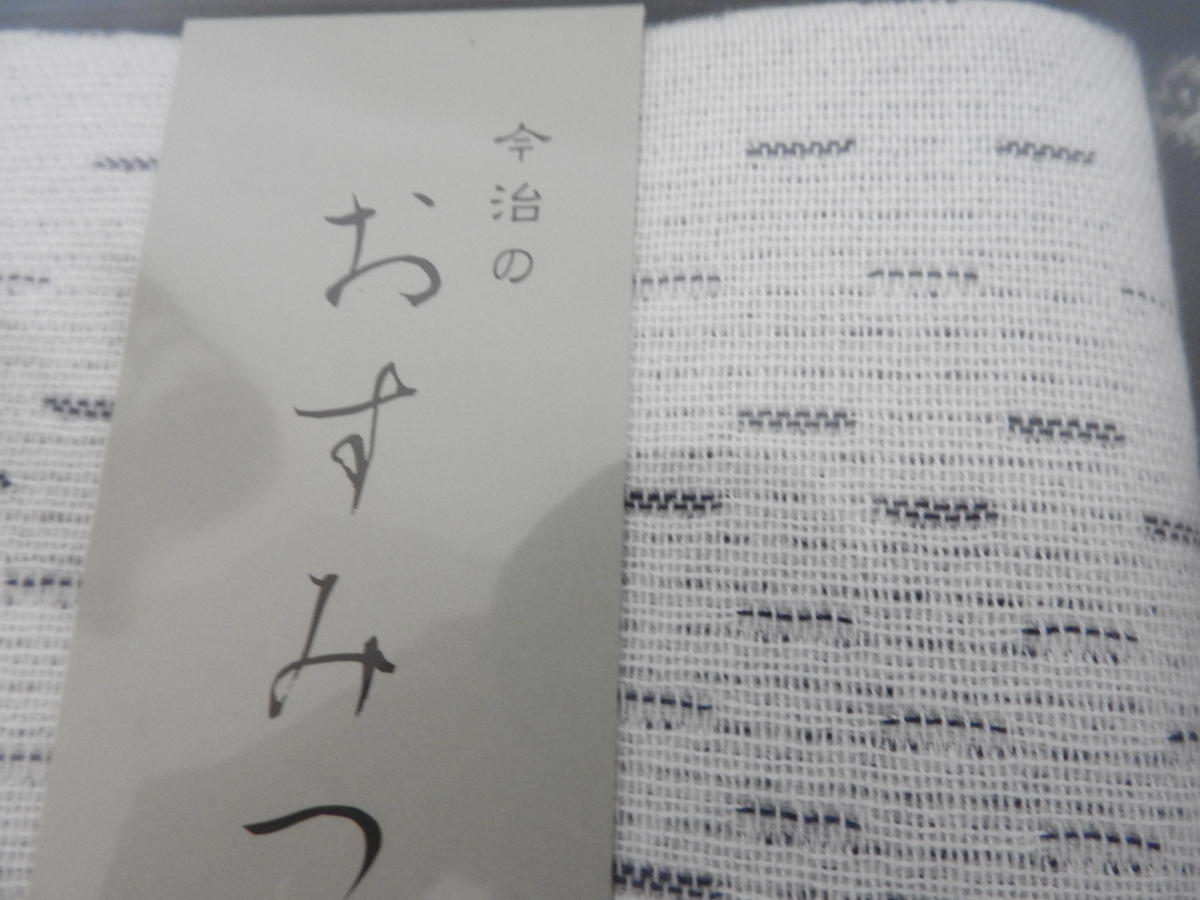 今治の
おすみつ